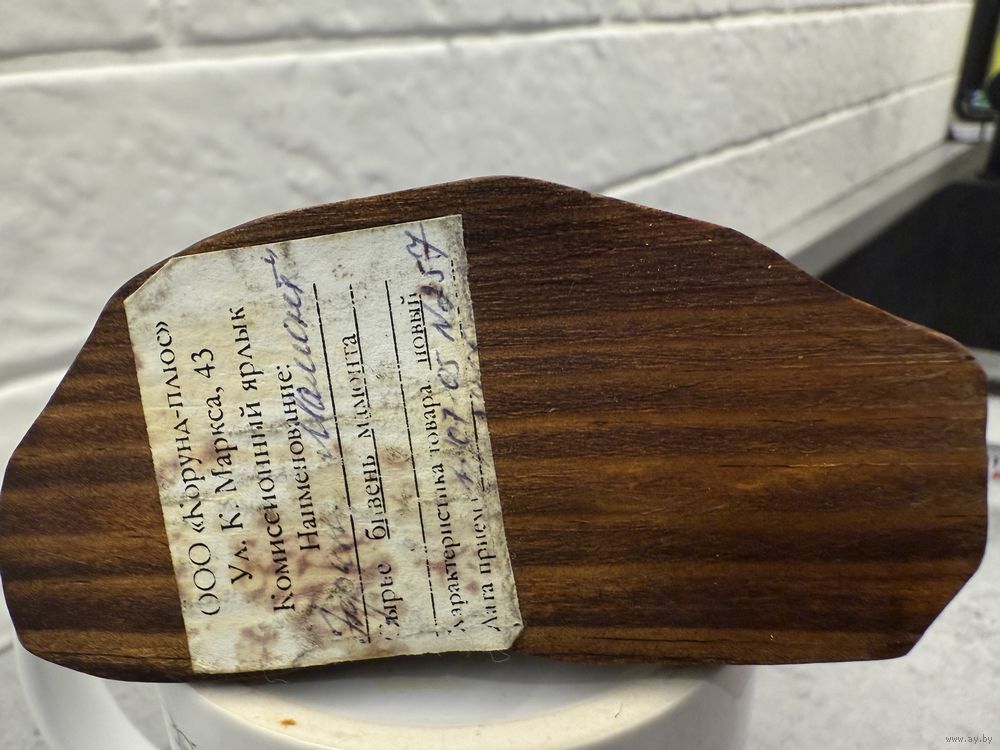 ООО «Корунд-плюс»
Ул. К. Маркса, 43
Комиссионный ярлык
Наименование:
"Мамонт"
Сырье бивень мамонта
Характеристика товара новый
Дата прием 07 05 N257
www.ay.by